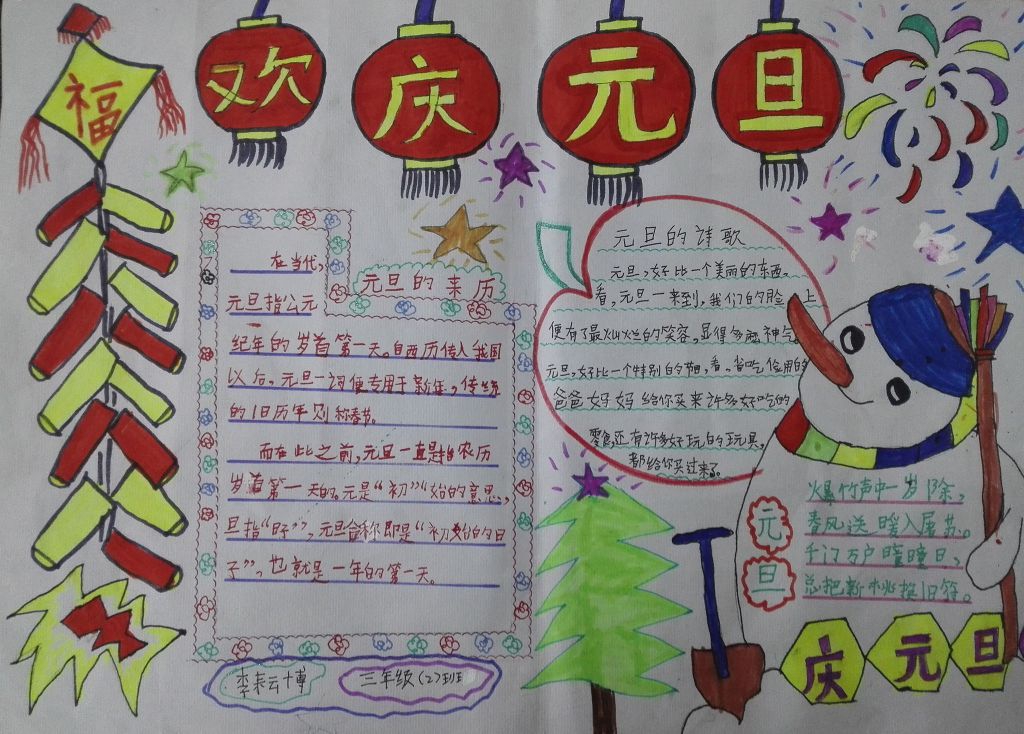 福
欢庆元旦
元旦的来历
在当代，
元旦指公元
纪年的岁首第一天。自西历传入我国
以后，元旦一词便专用于新年，传统
的旧历年则称春节。
而在此之前，元旦一直是指农历
岁首第一天的。元是“初”“始的意思，
旦指“时子”，元旦合称即是“初始的日
子”，也就是一年的第一天。
李耘博
三年级(2)班
元旦的诗歌
元旦，好比一个美丽的东西。
看，元旦一来到，我们的脸上
便有了最灿烂的笑容，显得多么神气
元旦，好比一个特别的节日，看，省吃俭用的
爸爸妈妈给你买来许多好吃的
零食还有许多好玩的玩具，
都给你买过来了。
元旦
爆竹声中一岁除，
春风送暖入屠苏。
千门万户曈曈日，
总把新桃换旧符。
庆元旦